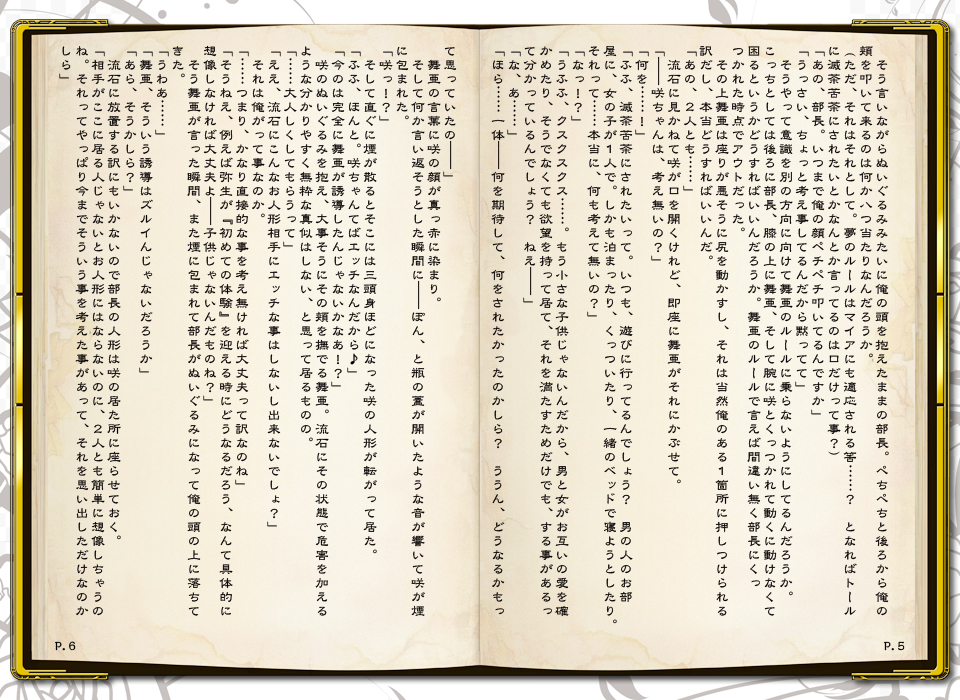 そう言いながらぬいぐるみたいに俺の頭を抱えたままの部長。ぺちぺちと後ろから俺の
頬を叩いて来るのは何か八つ当たりなんだろうか。
（ただ、それはそれとして。夢のルールはマイアにも適応される筈……？　となればトール
に滅茶苦茶にされたいとかなんとか言ってるのは口だけって事？）
「あの、部長。いつまで俺の顔ペチペチ叩いてるんですか」
「うっさい、ちょっと考え事してるんだから黙ってて」
　そうやって意識を別の方向に向けて舞亜のルールに乗らないようにしてるんだろうか。
こっちとしては後ろに部長、膝の上に舞亜、そして腕に咲とくっつかれて動くに動けなくて
困るというかどうすればいいんだろうか。舞亜のルールで言えば間違い無く部長にくっ
つかれた時点でアウトだった。
　その上舞亜は座りが悪そうに尻を動かすし、それは当然俺のある１箇所に押しつけられる
訳だし、本当どうすればいいんだ。
「あの、２人とも……」
　流石に見かねて咲が口を開くけれど、即座に舞亜がそれにかぶせて。
「――咲ちゃんは、考え無いの？」
「何を……！」
「ふふ、滅茶苦茶にされたいって。いつも、遊びに行ってるんでしょう？　男の人のお部
屋に、女の子が１人で。しかも泊まったり、くっついたり、一緒のベッドで寝ようとしたり。
それって……本当に、何も考えて無いの？」
「なっ！？」
「うふふ、クスクスクス……。もう小さな子供じゃないんだから、男と女がお互いの愛を確
かめたり、そうでなくても欲望を持って居て、それを満たすためだけでも、する事があるっ
て分かって居るんでしょう？　ねえ――」
「な、あ……」
「ほら……一体――何を期待して、何をされたかったのかしら？　ううん、どうなるかもっ
P.5
て思っていたの――」
　舞亜の言葉に咲の顔が真っ赤に染まり。
　そして何か言い返そうとした瞬間に――ぽん、と瓶の蓋が開いたような音が響いて咲が煙
に包まれた。
「咲っ！？」
　そして直ぐに煙が散るとそこには三頭身ほどになった咲の人形が転がって居た。
「ふふ、ほんと。咲ちゃんてばエッチなんだから♪」
「今のは完全に舞亜が誘導したんじゃないかなあ！？」
　咲のぬいぐるみを抱え、大事そうにその頬を撫でる舞亜。流石にその状態で危害を加える
ような分かりやすく無粋な真似はしない、と思って居るものの。
「……大人しくしてもらうって」
「ええ、流石にこんなお人形相手にエッチな事はしないし出来ないでしょ？」
　それは俺がって事なのか。
「……つまり、かなり直接的な事を考え無ければ大丈夫って訳なのね」
「そうねえ、例えば弥生が『初めての体験』を迎える時にどうなるだろう、なんて具体的に
想像しなければ大丈夫よ――子供じゃないんだものね？」
　そう舞亜が言った瞬間、また煙に包まれて部長がぬいぐるみになって俺の頭の上に落ちて
きた。
「うわあ……」
「舞亜、そういう誘導はズルイんじゃないだろうか」
「あら、そうかしら？」
　流石に放置する訳にもいかないので部長の人形は咲の居た所に座らせておく。
「相手がここに居る人じゃないとお人形にはならないのに、２人とも簡単に想像しちゃうの
ね。それってやっぱり今までそういう事を考えた事があって、それを思い出しただけなのか
しら」
P.6